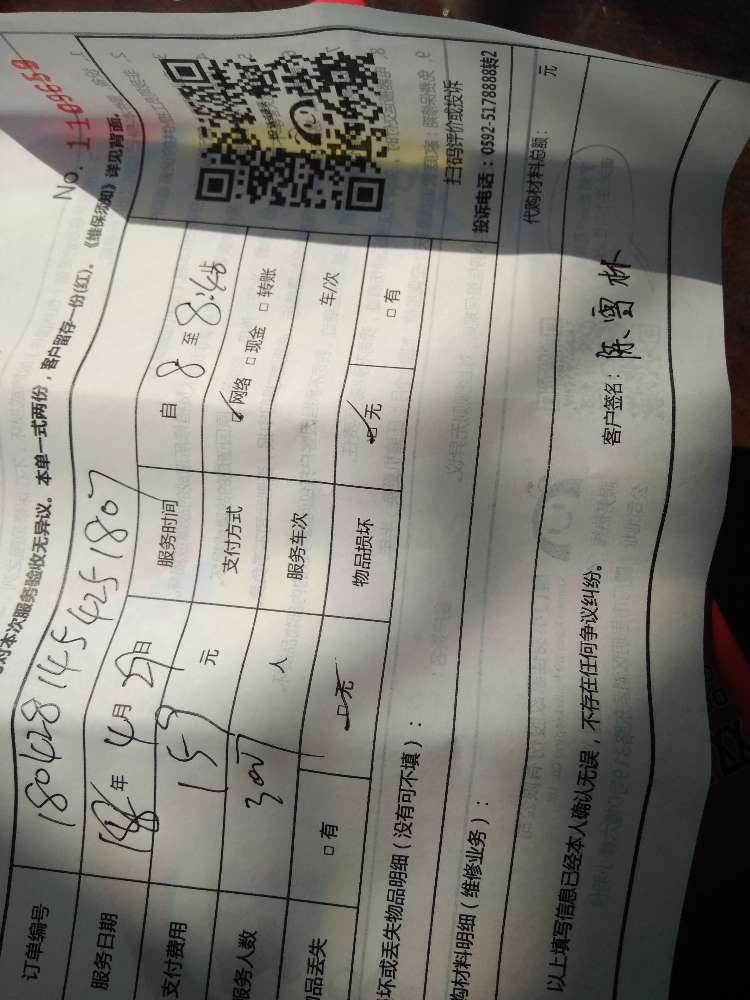 No. 1109650
对本次服务验收无异议。本单一式两份，客户留存一份(红)。《维保须知》详见背面。
订单编号 1804281454251807
服务日期 18年4月29日 服务时间 自 8 至 8:45
支付费用 159 元 支付方式 网络 现金 转账
服务人数 人 服务车次 车/次
品丢失 有 无 物品损坏 无 有
扫码评价或投诉
投诉电话：0592-5178888转2
坏或丢失物品明细（没有可不填）：
购材料明细（维修业务）： 代购材料总额： 元
以上填写信息已经本人确认无误，不存在任何争议纠纷。 客户签名：陈雪林